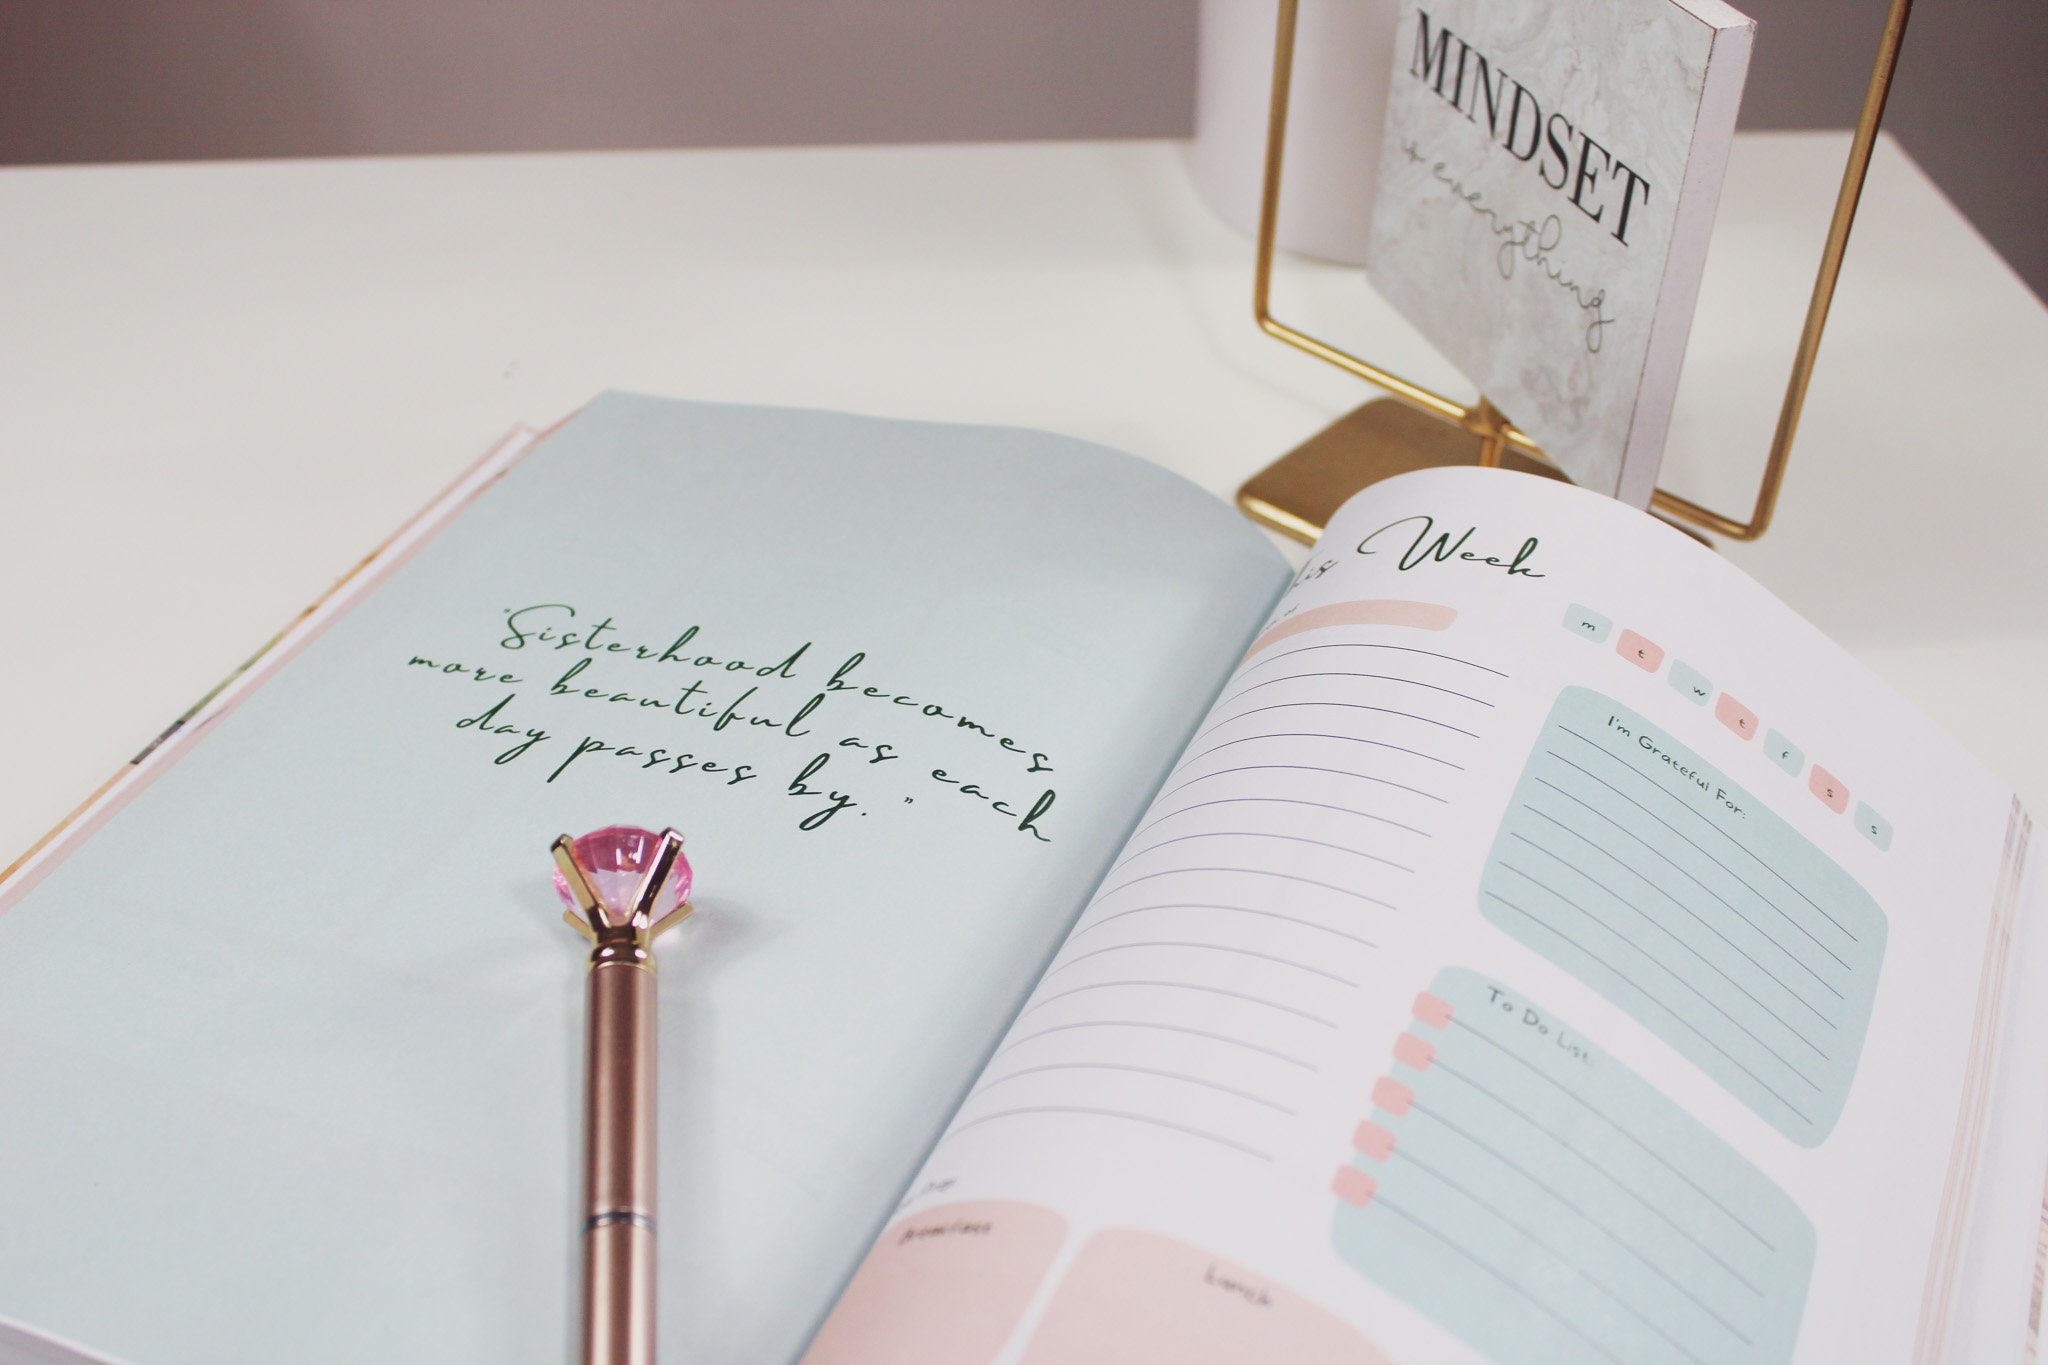 MINDSET
is everything
"Sisterhood becomes
more beautiful as each
day passes by."
Week
m t w t f s s
I'm Grateful For:
To Do List:
Breakfast
Lunch